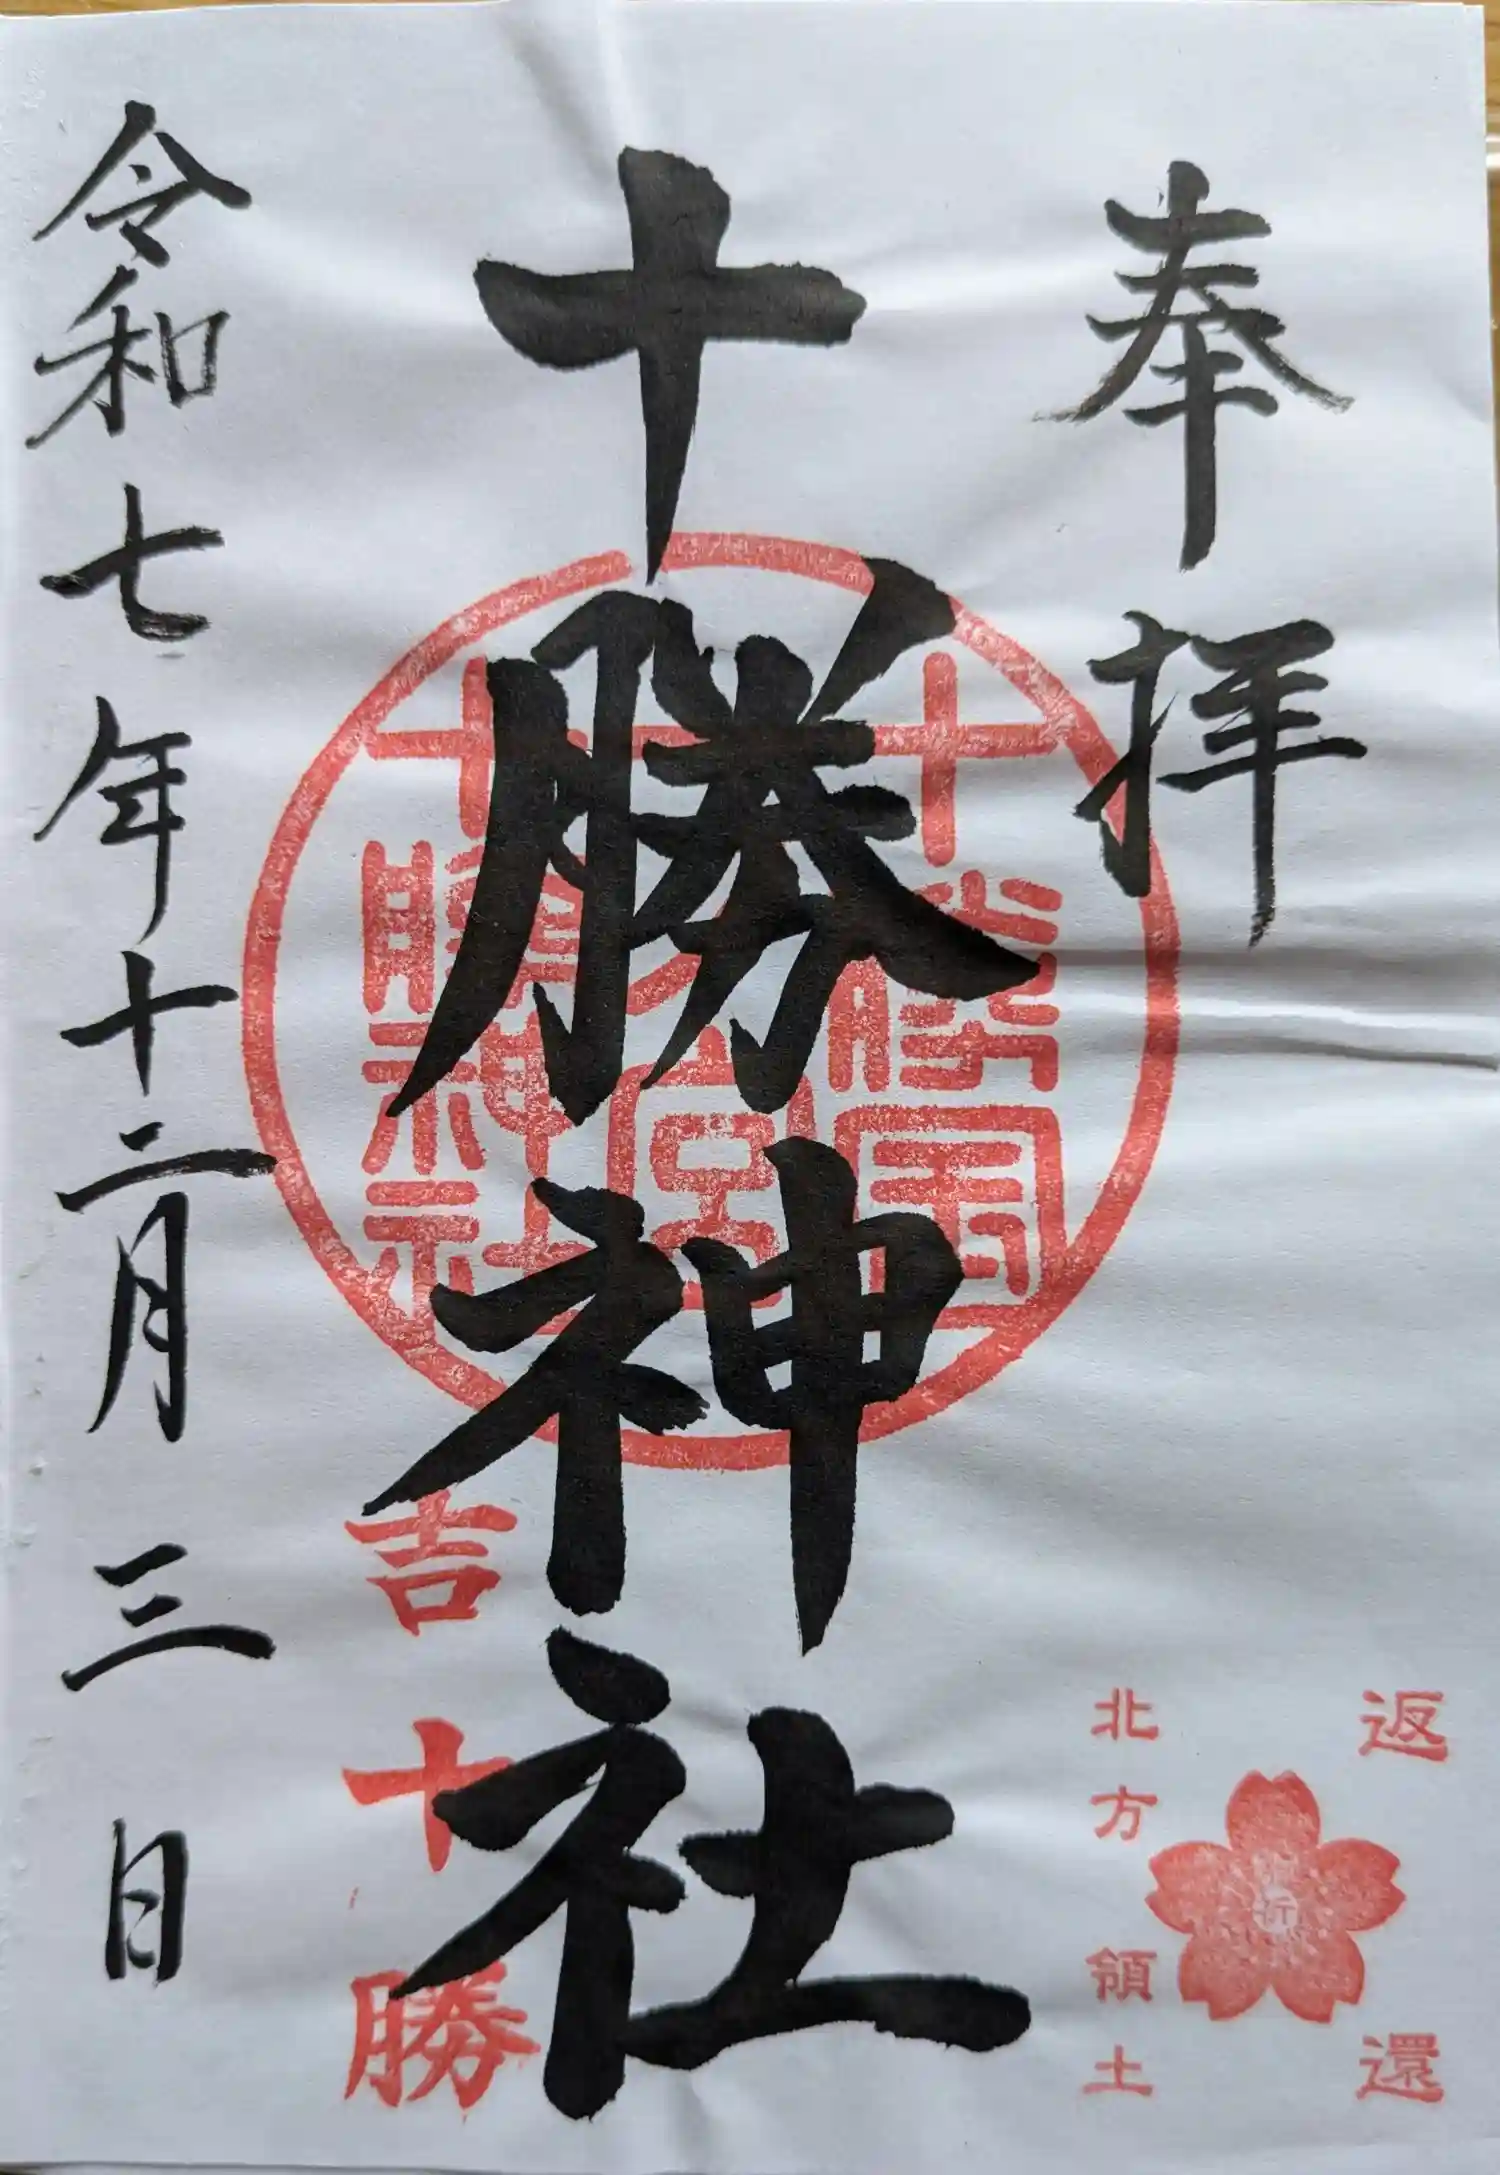 奉拝
十勝神社
令和七年十二月三日
十勝国
一之宮
十勝神社
吉
十勝
返還
祈
北方領土